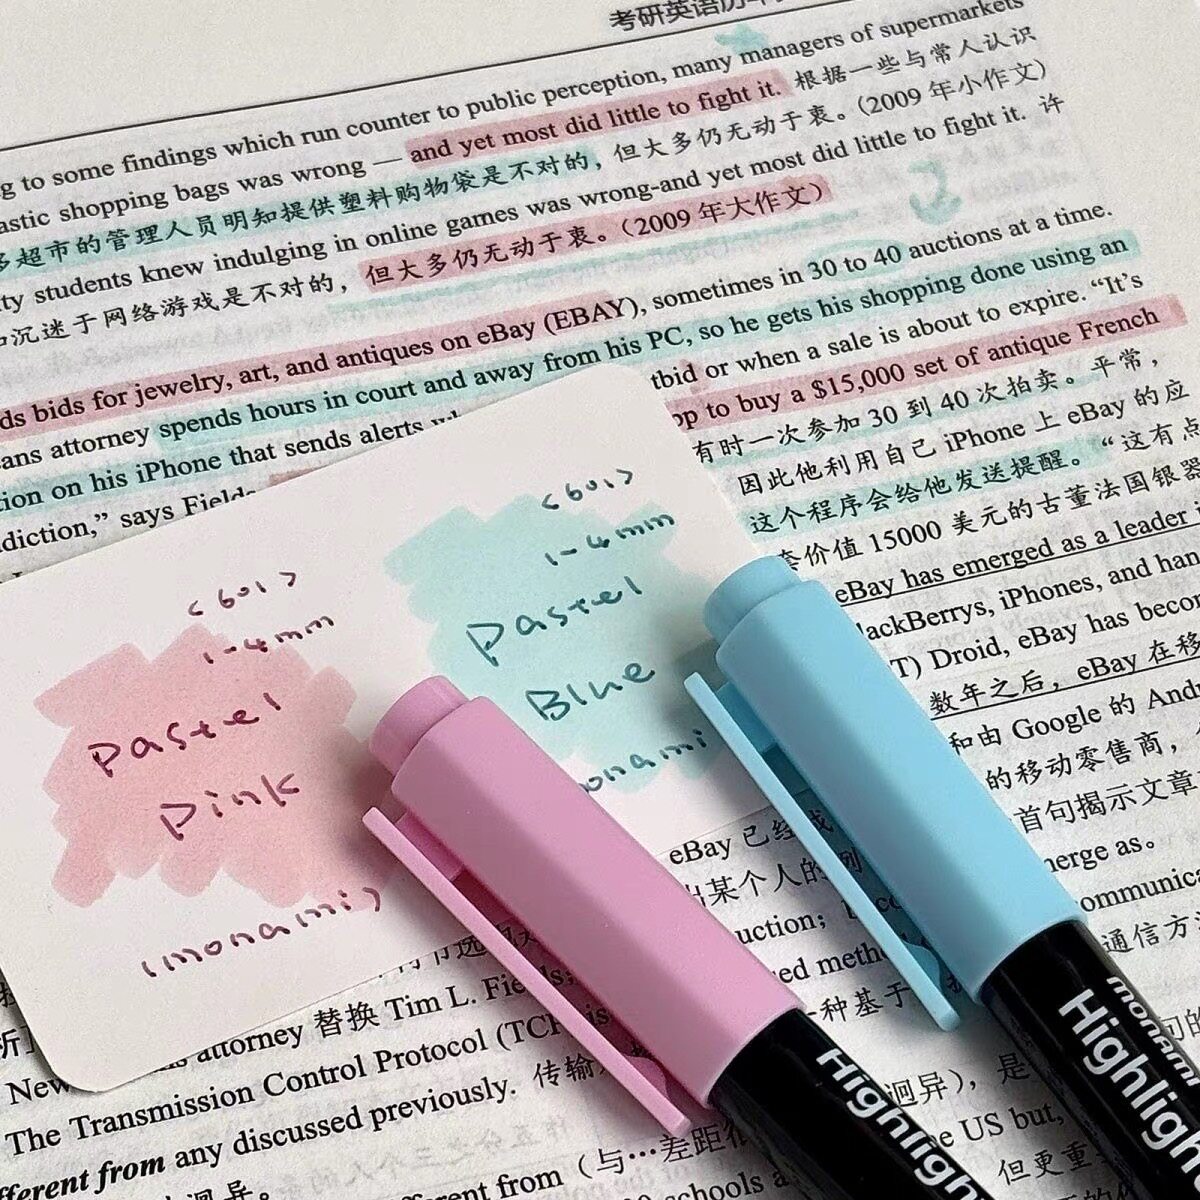 考研英语历
g to some findings which run counter to public perception, many managers of supermarkets
astic shopping bags was wrong — and yet most did little to fight it. 根据一些与常人认识
多超市的管理人员明知提供塑料购物袋是不对的，但大多仍无动于衷。（2009 年小作文）
ty students knew indulging in online games was wrong-and yet most did little to fight it. 许
沉迷于网络游戏是不对的，但大多仍无动于衷。（2009 年大作文）
ds bids for jewelry, art, and antiques on eBay (EBAY), sometimes in 30 to 40 auctions at a time.
ans attorney spends hours in court and away from his PC, so he gets his shopping done using an
tion on his iPhone that sends alerts tbid or when a sale is about to expire. “It’s
diction,” says Fields op to buy a $15,000 set of antique French
有时一次参加 30 到 40 次拍卖。平常，
因此他利用自己 iPhone 上 eBay 的应
这个程序会给他发送提醒。“这有点
套价值 15000 美元的古董法国银器
eBay has emerged as a leader
lackBerrys, iPhones, and han
T) Droid, eBay has becom
数年之后，eBay 在移
和由 Google 的 And
的移动零售商，
首句揭示文章
eBay 已经
出某个人的例 merge as.
uction; ommunica
ed meth 通信方
一种基于
attorney 替换 Tim L. Fields;
New
The Transmission Control Protocol (TCP is
fferent from any discussed previously. 传输
迥异），是
迥异。 e US but,
erent from（与…差距很 但更重
schools a
<601>
1-4mm
Pastel
Pink
(monami)
<601>
1-4mm
Pastel
Blue
onami
Highligh
monami
Highligh